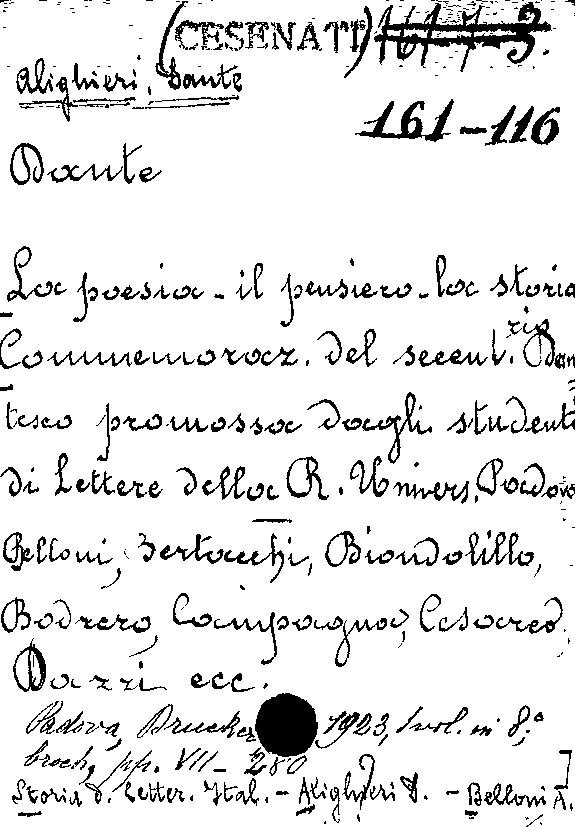 (CESENATI) 161-7-3.
Alighieri, Dante
161-116
Dante
La poesia - il pensiero - la storia
Commemoraz. del secent.rio Dan
tesco promossa dagli studenti
di Lettere della R. Univers. Padova
Belloni, Bertacchi, Biondolillo,
Bodrero, Campagna, Cesareo,
Dazzi ecc.
Padova, Drucker 1923, 1 vol. in 8,°
broch, pp. VII - 280
Storia d. Letter. Ital. - Alighieri D. - Belloni A.